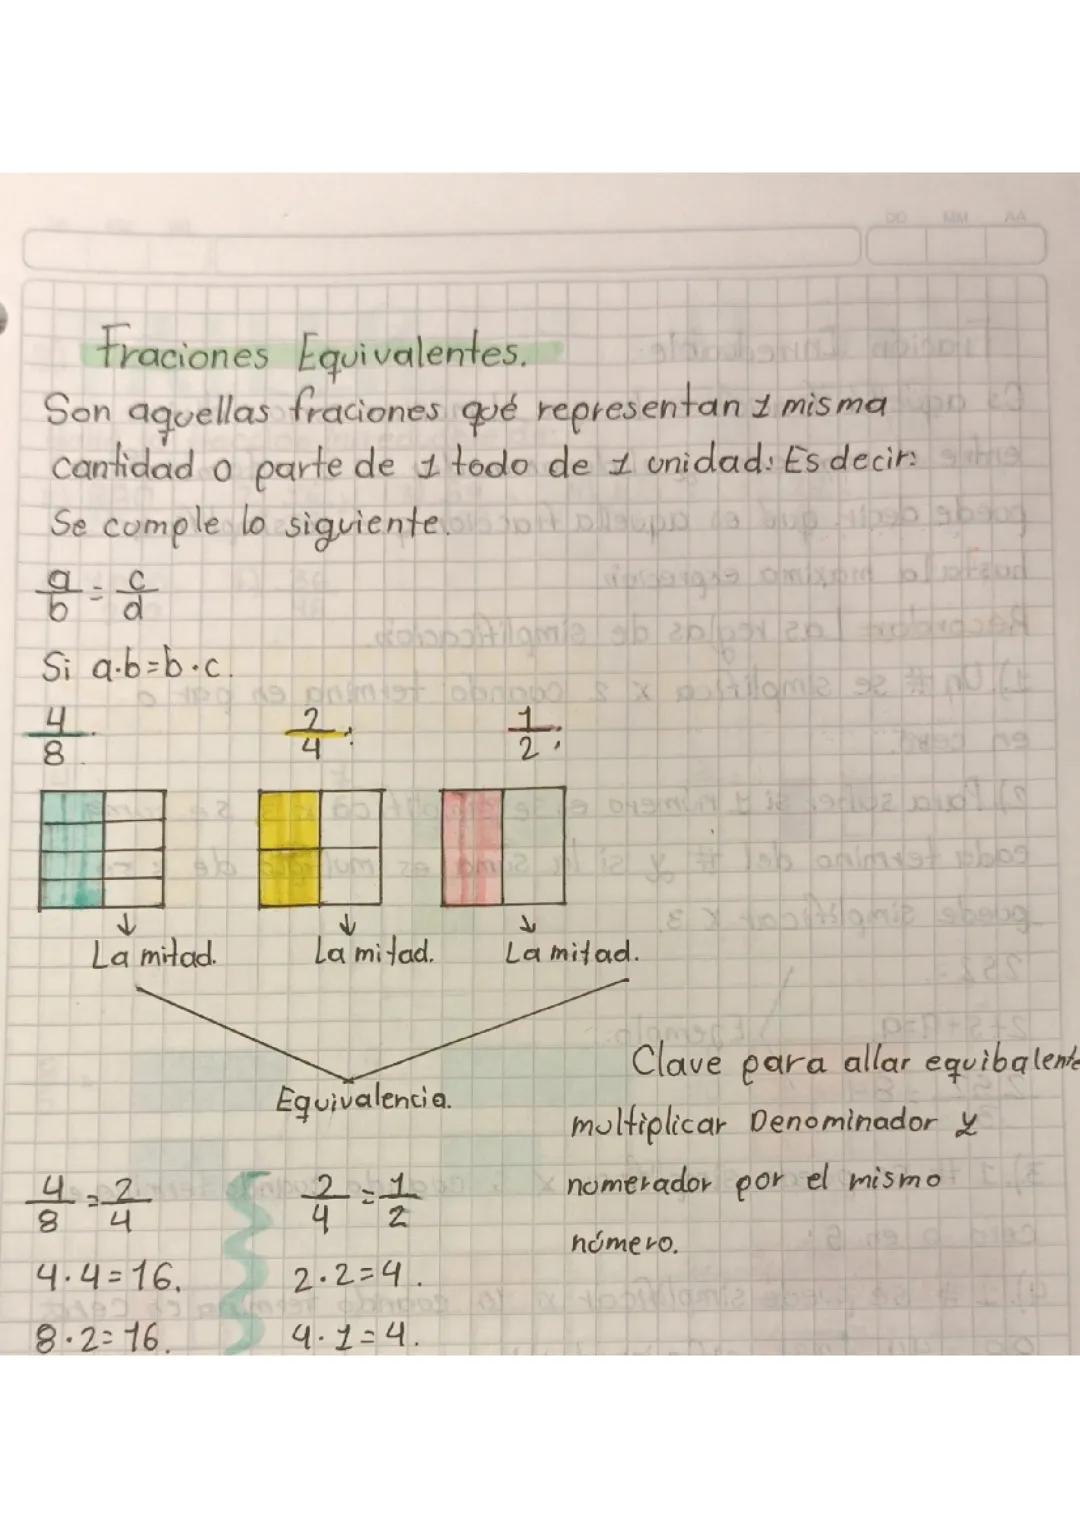 DD MM AA
Fraciones Equivalentes.
Son aquellas fraciones qué representan 1 misma
cantidad o parte de 1 todo de 1 unidad: Es decir:
Se cumple lo siguiente.
a/b = c/d
Si a·b=b·c.
4/8. 2/4: 1/2;
↓ ↓ ↓
La mitad. La mitad. La mitad.
Equivalencia.
Clave para allar equibalente
multiplicar Denominador y
numerador por el mismo
número.
4/8 = 2/4 2/4 = 1/2
4·4=16. 2·2=4.
8·2=16. 4·1=4.